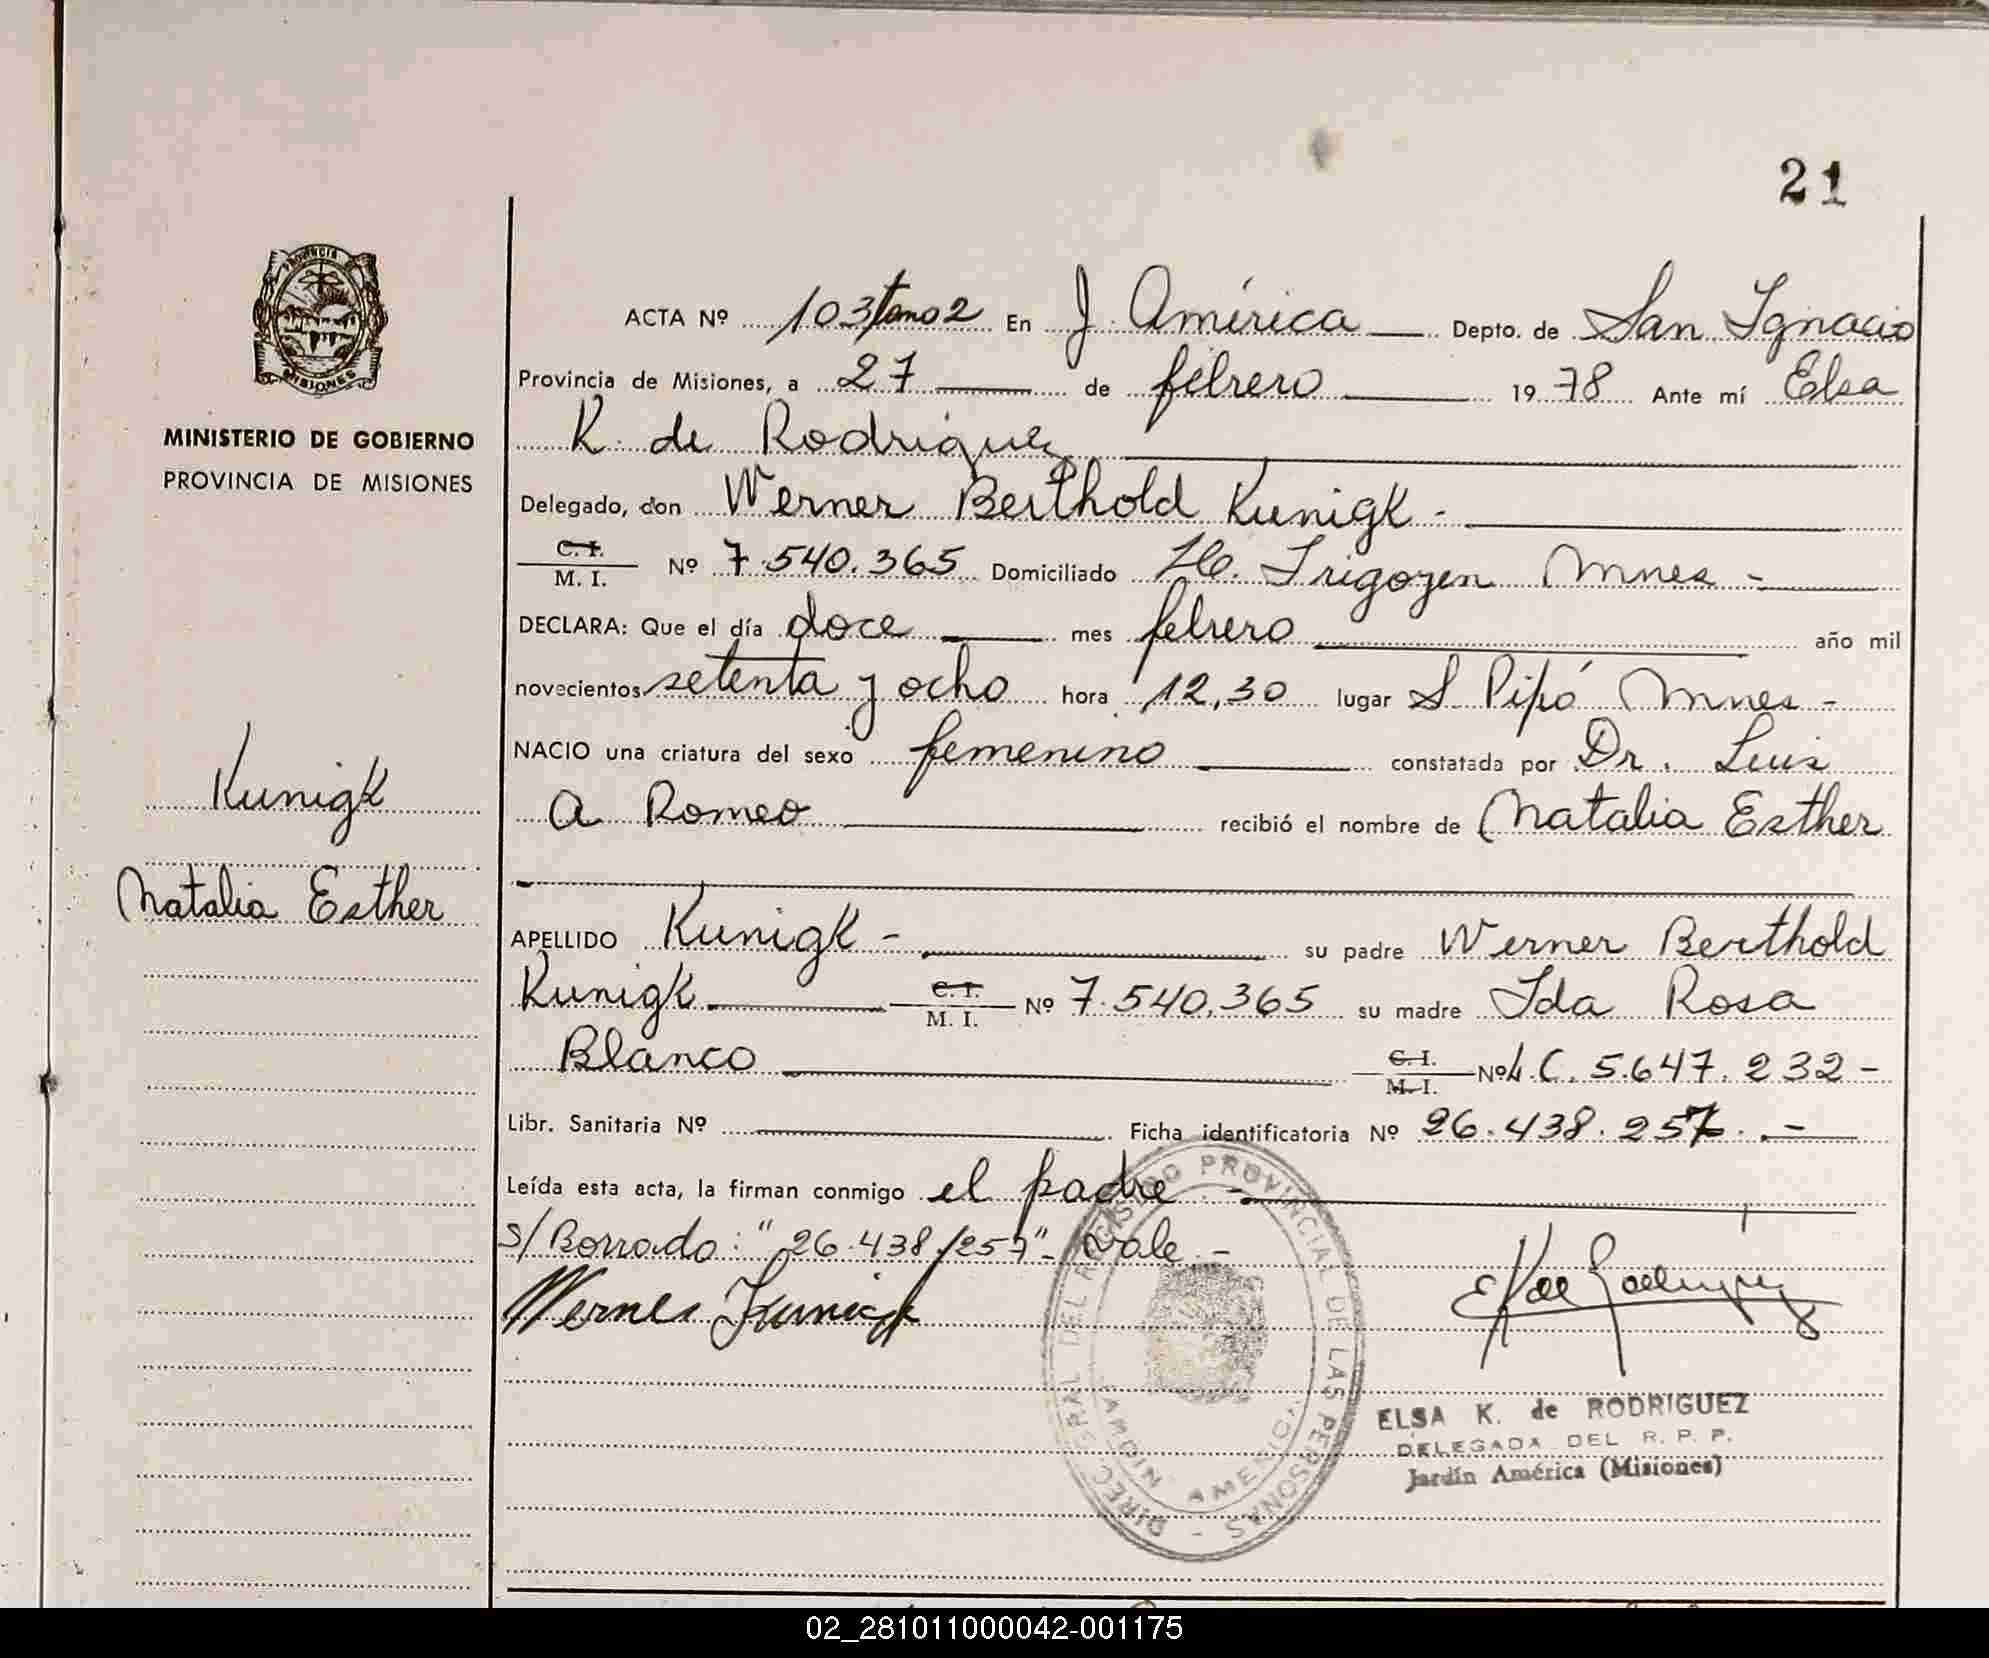 21
PROVINCIA DE
MISIONES
MINISTERIO DE GOBIERNO
PROVINCIA DE MISIONES
Kunigk
Natalia Esther
ACTA Nº 103/tomo 2 En J. América Depto. de San Ignacio
Provincia de Misiones, a 27 de febrero 1978 Ante mí Elsa
K. de Rodriguez
Delegado, don Werner Berthold Kunigk -
C. I.
M. I. Nº 7.540.365 Domiciliado H. Irigoyen Mnes -
DECLARA: Que el día doce mes febrero año mil
novecientos setenta y ocho hora 12,30 lugar S. Pipó Mnes -
NACIO una criatura del sexo femenino constatada por Dr. Luis
A Romeo recibió el nombre de Natalia Esther
APELLIDO Kunigk - su padre Werner Berthold
Kunigk C. I. M. I. Nº 7.540.365 su madre Ida Rosa
Blanco C. I. M. I. Nº L.C. 5.647.232 -
Libr. Sanitaria Nº Ficha identificatoria Nº 26.438.257. -
Leída esta acta, la firman conmigo el padre. -
s/Borrado: "26.438.257" - Vale. -
Werner Kunigk
E K de Rodriguez
DIREC. GRAL. DEL REGISTRO PROVINCIAL DE LAS PERSONAS -
JARDIN AMERICA
ELSA K. de RODRIGUEZ
DELEGADA DEL R. P. P.
Jardín América (Misiones)
02_281011000042-001175